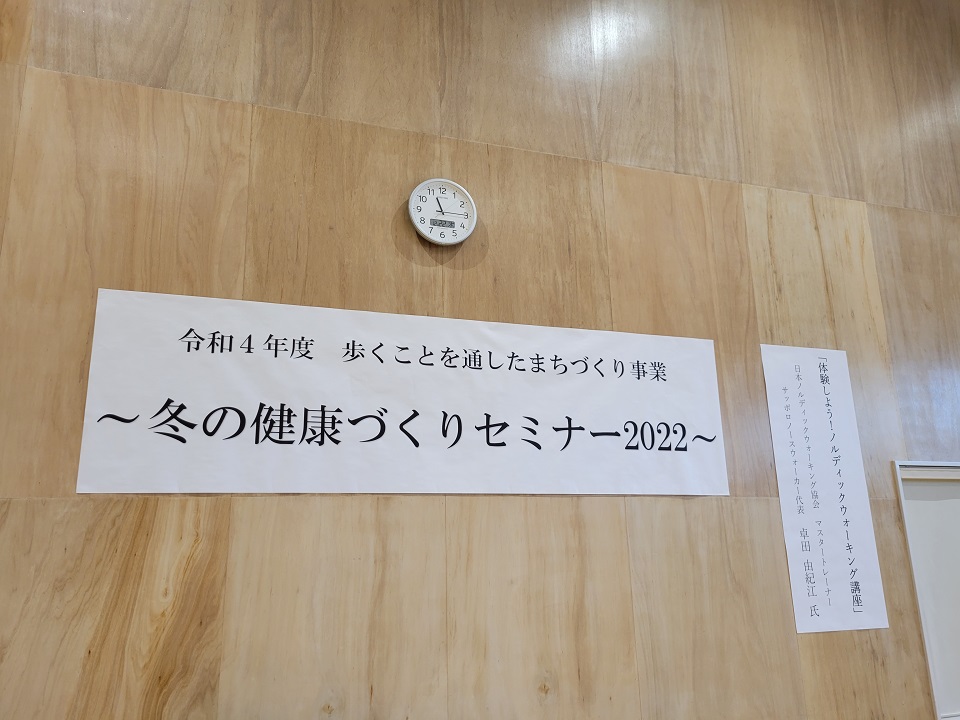 令和４年度　歩くことを通したまちづくり事業
～冬の健康づくりセミナー2022～
「体験しよう！ノルディックウォーキング講座」
日本ノルディックウォーキング協会　マスタートレーナー
サッポロノースウォーカー代表　卓田　由紀江　氏
12
1
2
3
4
5
6
7
8
9
10
11